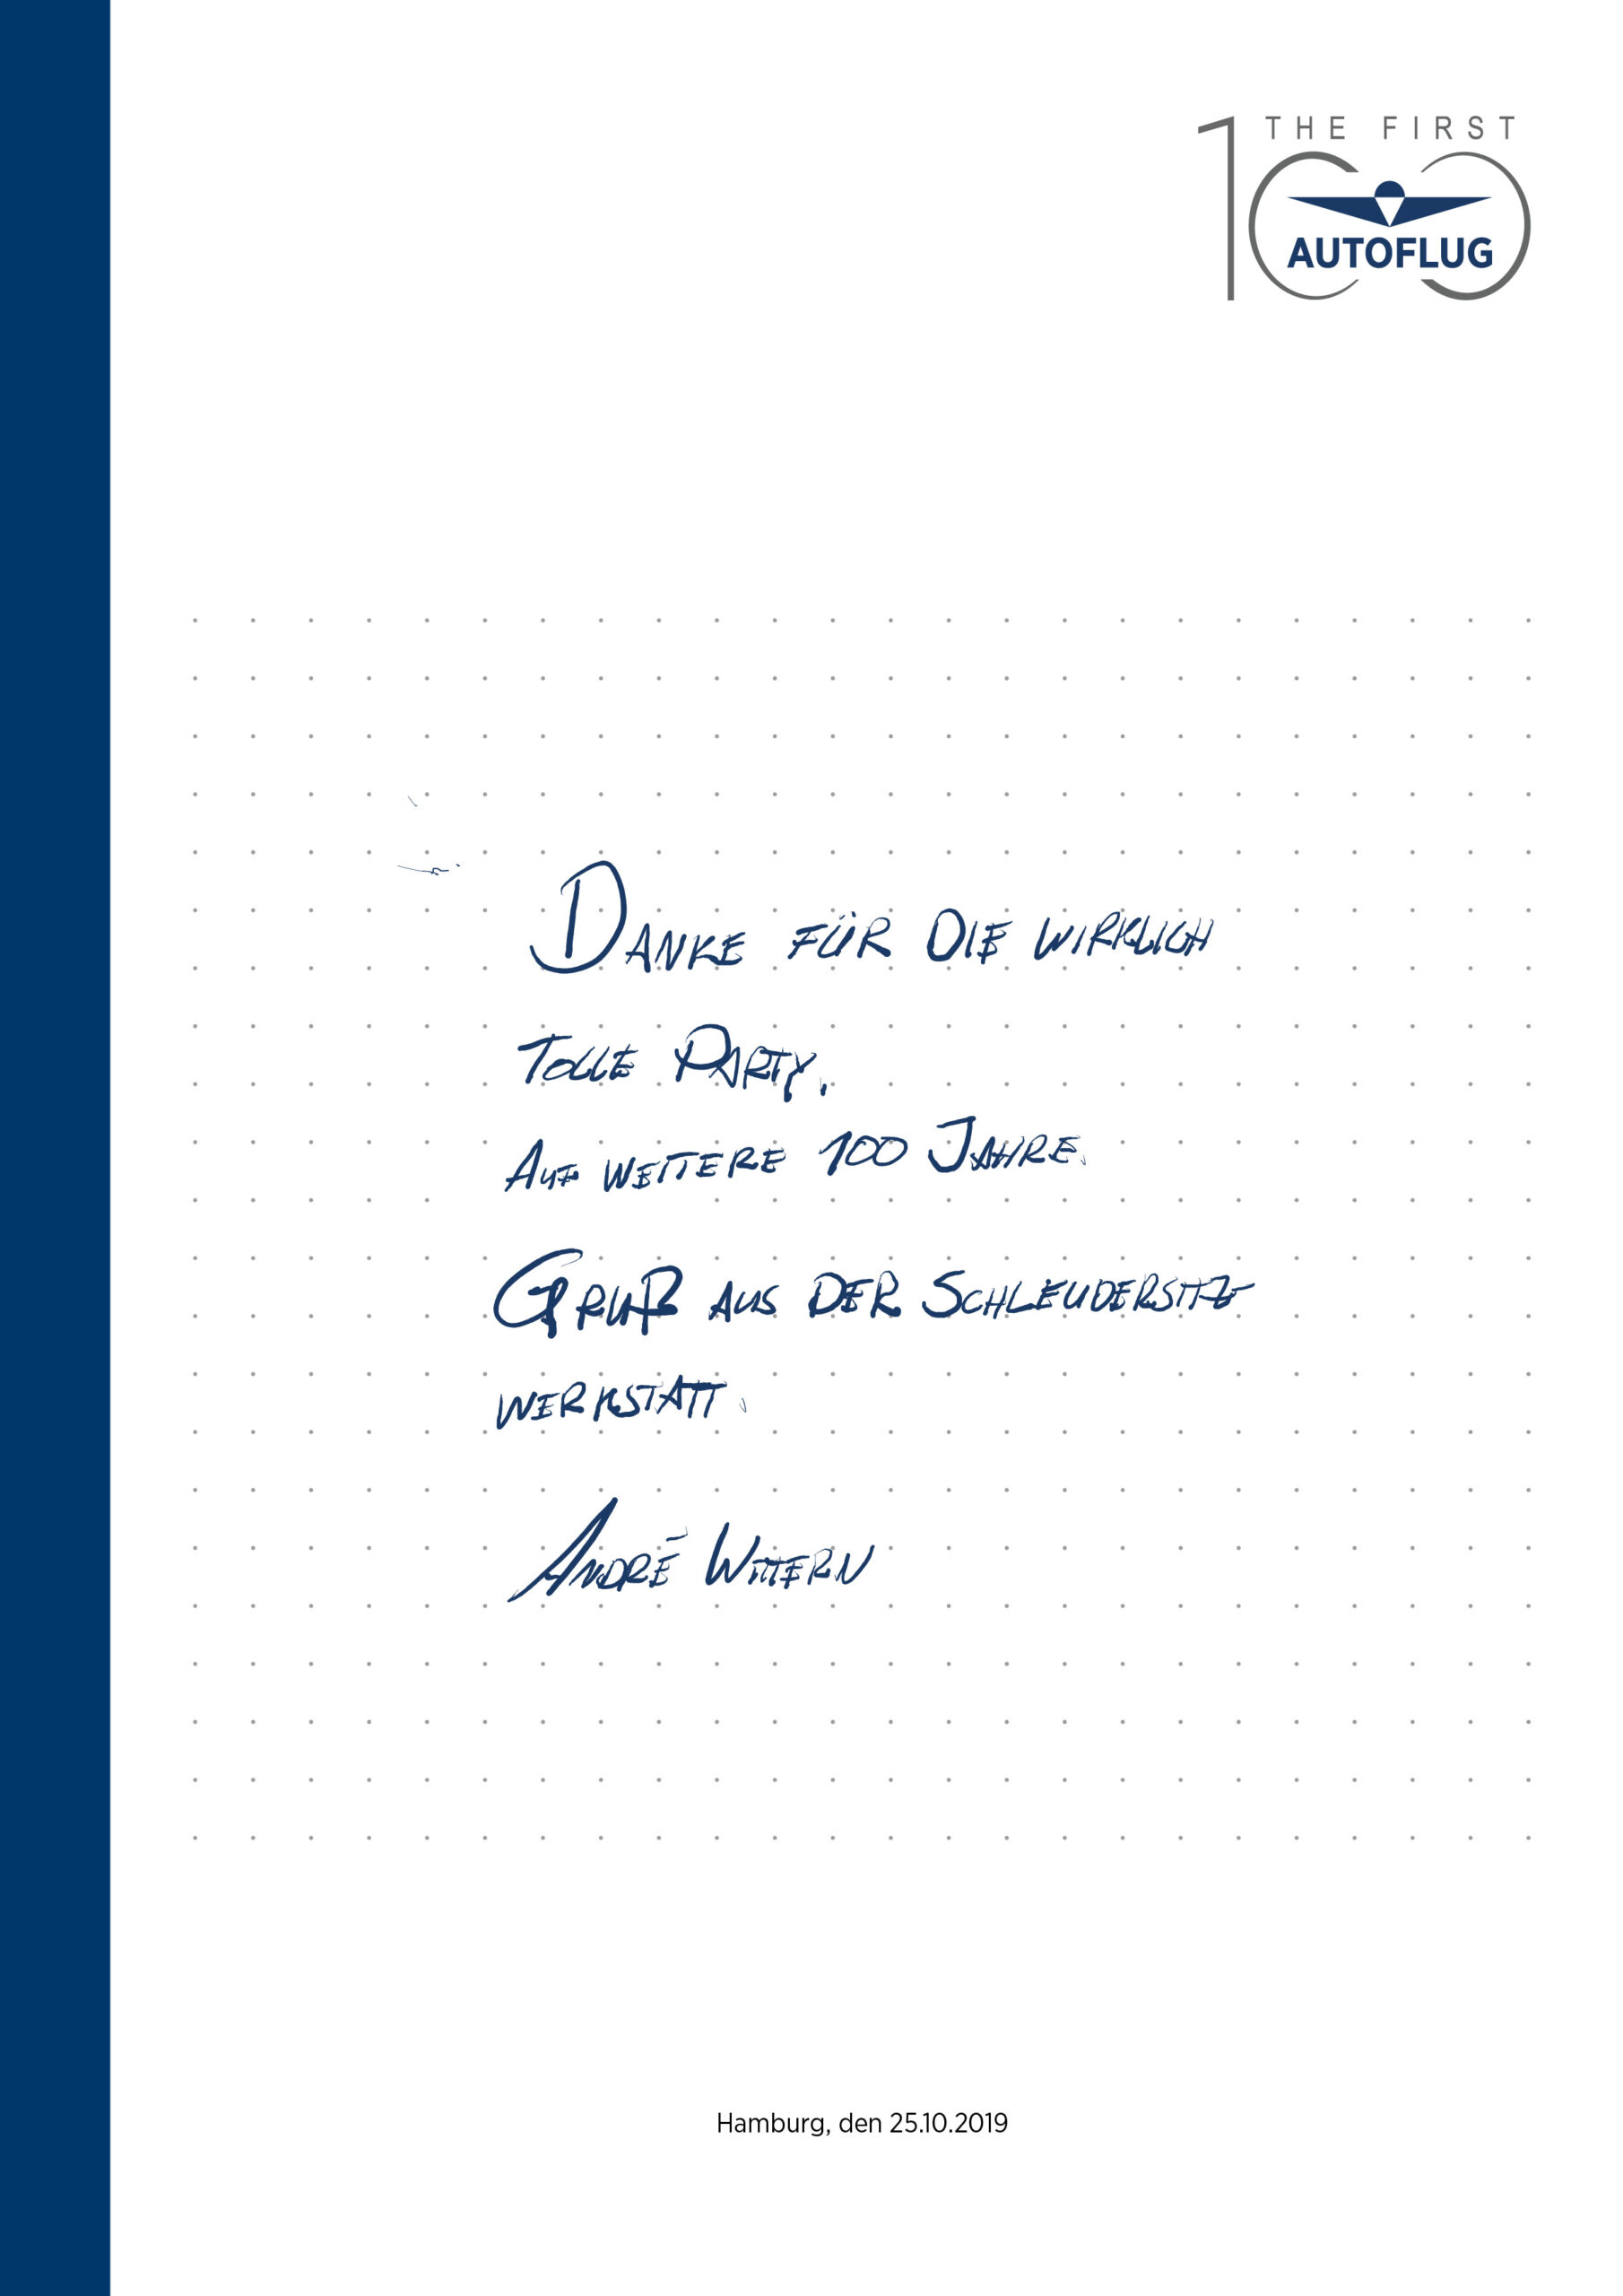 THE FIRST
100
AUTOFLUG
DANKE FÜR DIE WIRKLICH
TOLLE PARTY.
AUF WEITERE 100 JAHRE.
GRUß AUS DER SCHLEUDERSITZ
WERKSTATT.
ANDRÉ WITTERN
Hamburg, den 25.10.2019